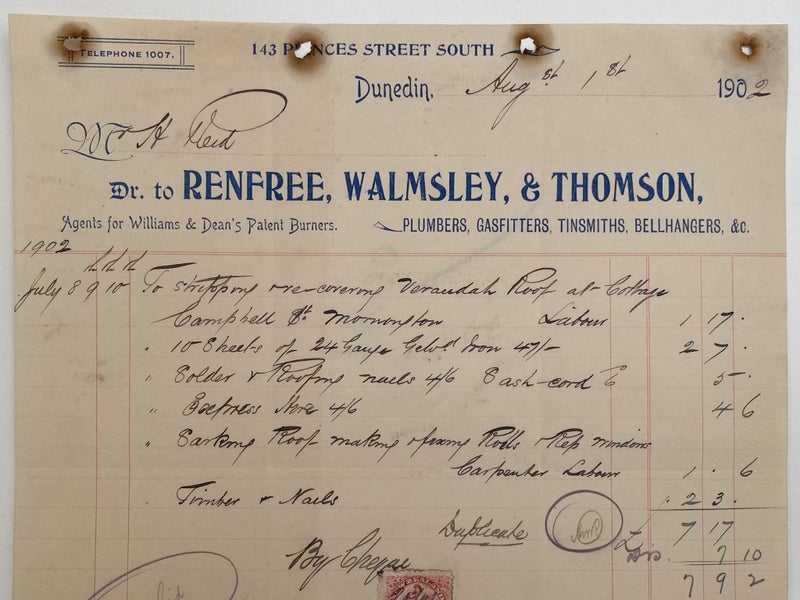 TELEPHONE 1007.
143 PRINCES STREET SOUTH
Dunedin, Augst 1st 1902
Mr H Reid
Dr. to RENFREE, WALMSLEY, & THOMSON,
Agents for Williams & Dean's Patent Burners. PLUMBERS, GASFITTERS, TINSMITHS, BELLHANGERS, &c.
1902
July 8 9 10 To stripping & re-covering Verandah Roof at Cottage
Campbell St Mornington Labour 1 17 .
" 10 Sheets of 24 Gauge Galvd Iron 47/- 2 7 .
" Solder & Roofing nails 4/6 Sash-cord 6 5 .
" Express Hire 4/6 4 6
" Sarking Roof making & fixing Rolls & Rep windows
Carpenter Labour 1 . 6
" Timber & Nails 2 3 .
Duplicate £ 7 17
Dis. 7 10
By Cheque 7 9 2